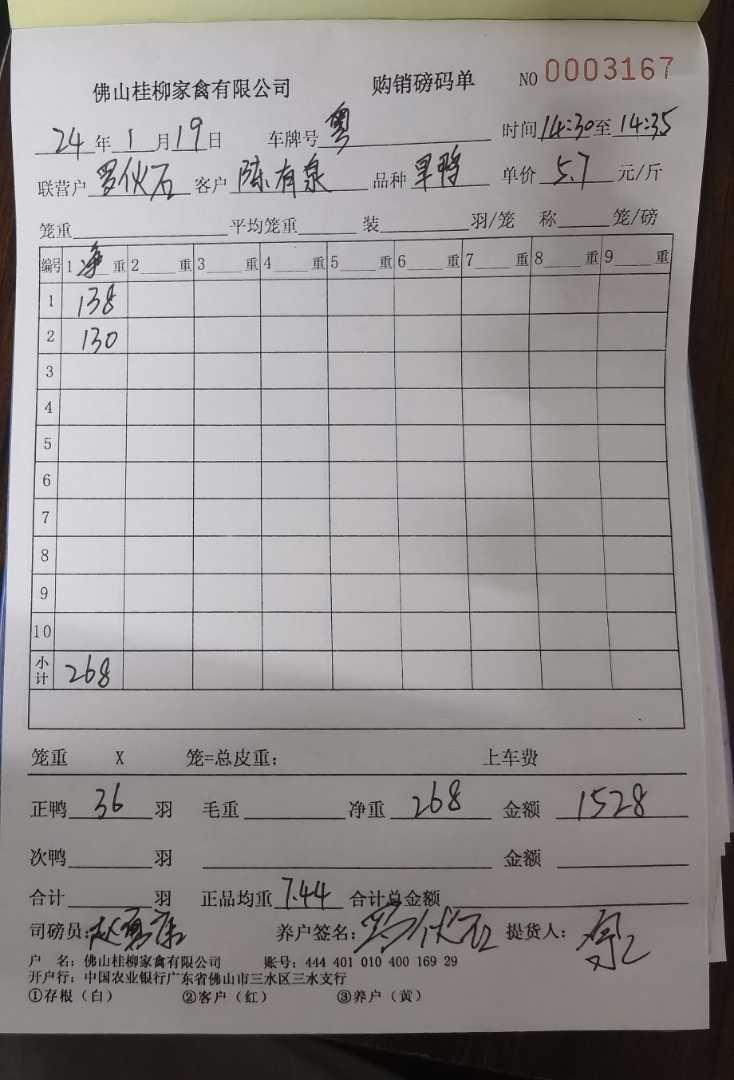 佛山桂柳家禽有限公司 购销磅码单 NO 0003167
24年1月19日 车牌号 粤 时间14:30至14:35
联营户 罗伙石 客户 陈有泉 品种 旱鸭 单价 5.7 元/斤
笼重 平均笼重 装 羽/笼 称 笼/磅
编号 1 净 重 2 重 3 重 4 重 5 重 6 重 7 重 8 重 9 重
1 138
2 130
3
4
5
6
7
8
9
10
小计 268
笼重 X 笼=总皮重: 上车费
正鸭 36 羽 毛重 净重 268 金额 1528
次鸭 羽 金额
合计 羽 正品均重 7.44 合计总金额
司磅员: 养户签名: 罗伙石 提货人:
户 名: 佛山桂柳家禽有限公司 账号: 444 401 010 400 169 29
开户行: 中国农业银行广东省佛山市三水区三水支行
①存根（白） ②客户（红） ③养户（黄）